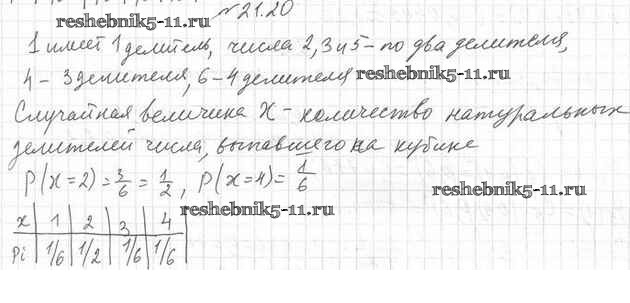 №21.20
reshebnik5-11.ru
1 имеет 1 делитель, числа 2, 3 и 5 – по два делителя,
4 – 3 делителя, 6 – 4 делителя
reshebnik5-11.ru
Случайная величина X – количество натуральных
делителей числа, выпавшего на кубике
P(x=2) = 3/6 = 1/2, P(x=4) = 1/6
reshebnik5-11.ru
reshebnik5-11.ru
x | 1 | 2 | 3 | 4
Pi | 1/6 | 1/2 | 1/6 | 1/6